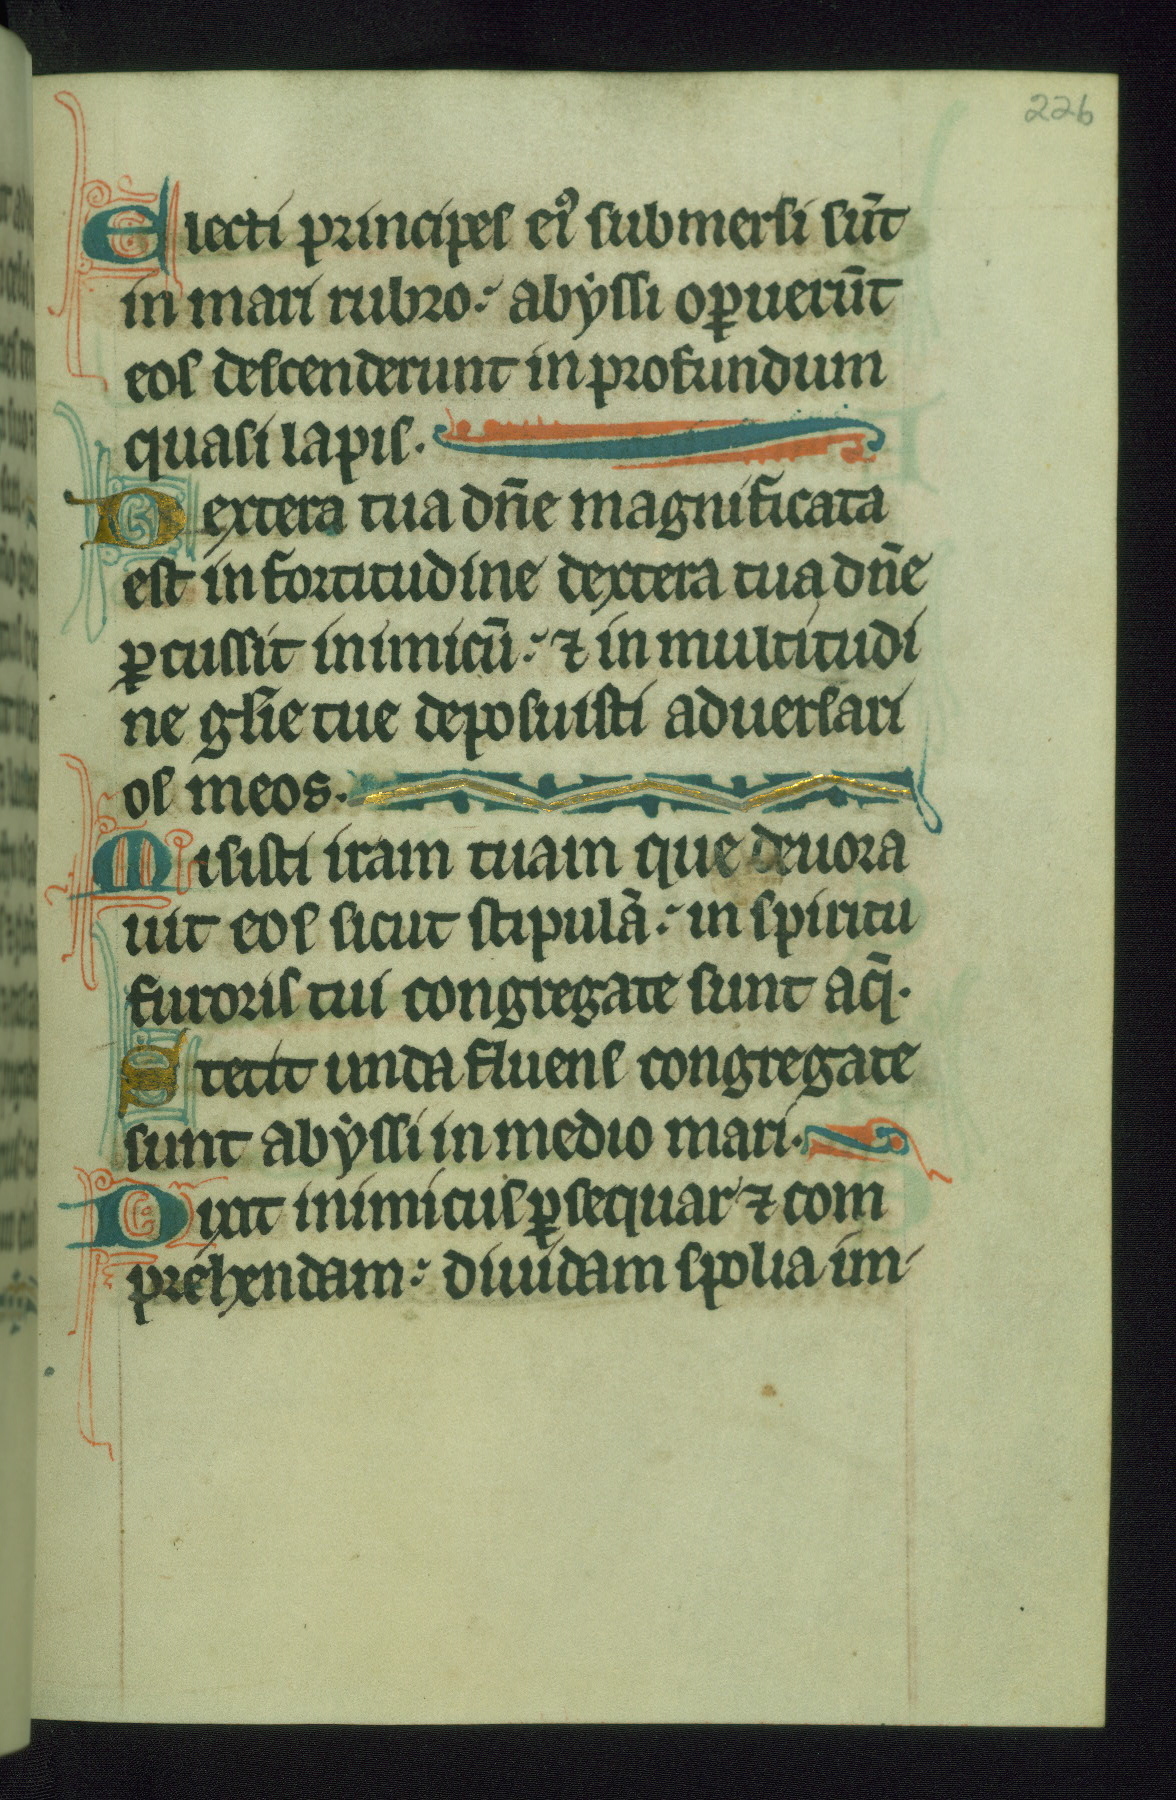 226
Electi principes ei⁹ submersi sūt
in mari rubro: abẏssi oꝑuerūt
eos descenderunt in profundum
quasi lapis.
Dextera tua dn̄e magnificata
est in fortitudine dextera tua dn̄e
ꝑcussit inimicū: ⁊ in multitudi
ne gl̄ie tue deposuisti aduersari
os meos.
Misisti iram tuam que deuora
uit eos sicut stipulā: in spiritu
furoris tui congregate sunt aq̄.
Stetit unda fluens congregate
sunt abẏssi in medio mari.
Dixit inimicus ꝑsequar ⁊ com
prehendam: diuidam spolia im-